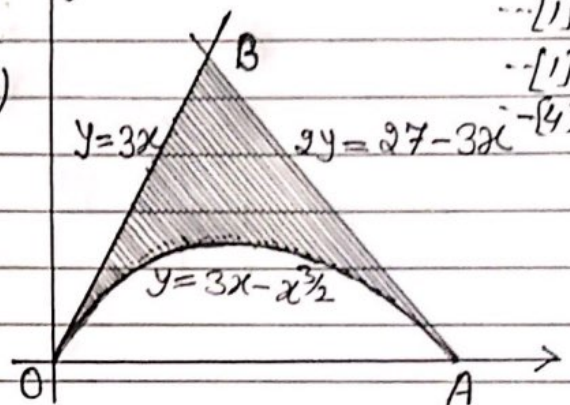 --[1]
--[1]
)
B
y=3x
2y = 27-3x
--[4]
y=3x-x^3/2
O
A